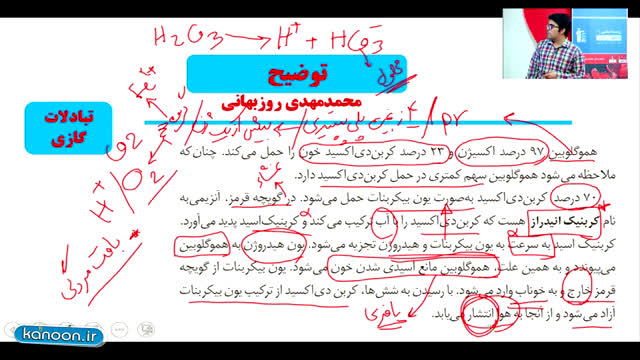 H₂CO₃ → H⁺ + HCO₃⁻
توضیح
محمدمهدی روزبهانی
تبادلات
گازی
Fe²⁺
CO₂
H⁺/O₂
1 pr
هموگلوبین ۹۷ درصد اکسیژن و ۲۳ درصد کربن‌دی‌اکسید خون را حمل می‌کند. چنان که
ملاحظه می‌شود هموگلوبین سهم کمتری در حمل کربن‌دی‌اکسید دارد.
۷۰ درصد کربن‌دی‌اکسید به‌صورت یون بیکربنات حمل می‌شود. در گویچه قرمز، آنزیمی به
نام کربنیک انیدراز هست که کربن‌دی اکسید را با آب ترکیب می‌کند و کربنیک‌اسید پدید می‌آورد.
کربنیک اسید به سرعت به یون بیکربنات و هیدروژن تجزیه می‌شود. یون هیدروژن به هموگلوبین
می‌پیوندد و به همین علت، هموگلوبین مانع اسیدی شدن خون می‌شود. یون بیکربنات از گویچه
قرمز خارج و به خوناب وارد می‌شود. با رسیدن به شش‌ها، کربن دی‌اکسید از ترکیب یون بیکربنات
آزاد می‌شود و از آنجا به هوا انتشار می‌یابد.
kanoon.ir